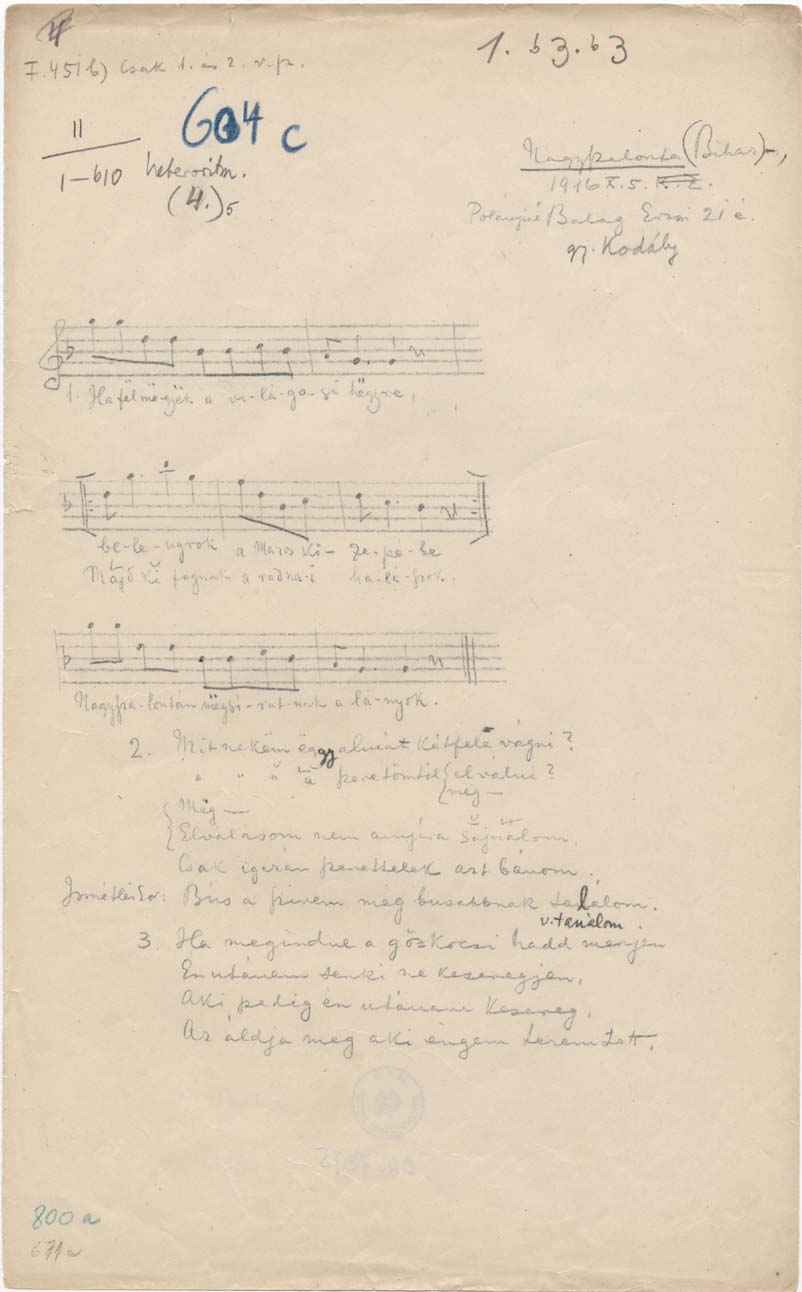 I. 451b) Csak 1. és 2. v.sz.
1. b3. b3
604 c
II
1–b10 heteroritm.
(4.)5
Nagyszalonta (Bihar)
1916 X. 5.
Polányiné Balog Erzsi 21 é.
gj. Kodály
1. Ha fëlmëgyëk a vi-lá-go-si hëgyre,
be-le-ugrok a Maros kö-ze-pé-be
Majd ki fognak a radna-i ha-lá-szok.
Nagysza-lontán mëgsi-rat-nak a lá-nyok.
2. Mit nekëm ëggy almát kétfelé vágni?
" " " a szeretömtöl el válni?
mëg —
Mëg —
Elválásom nem annyira sajnálom,
Csak igazán szerettelek azt bánom.
Ismétléskor: Bús a szivem még busabbnak találom.
v. tanálom
3. Ha megindul a gőzkocsi hadd menjen
Én utánam senki ne keseregjen,
Aki pedig én utánam kesereg,
Az áldja meg aki engem teremtett.
800 a
671a